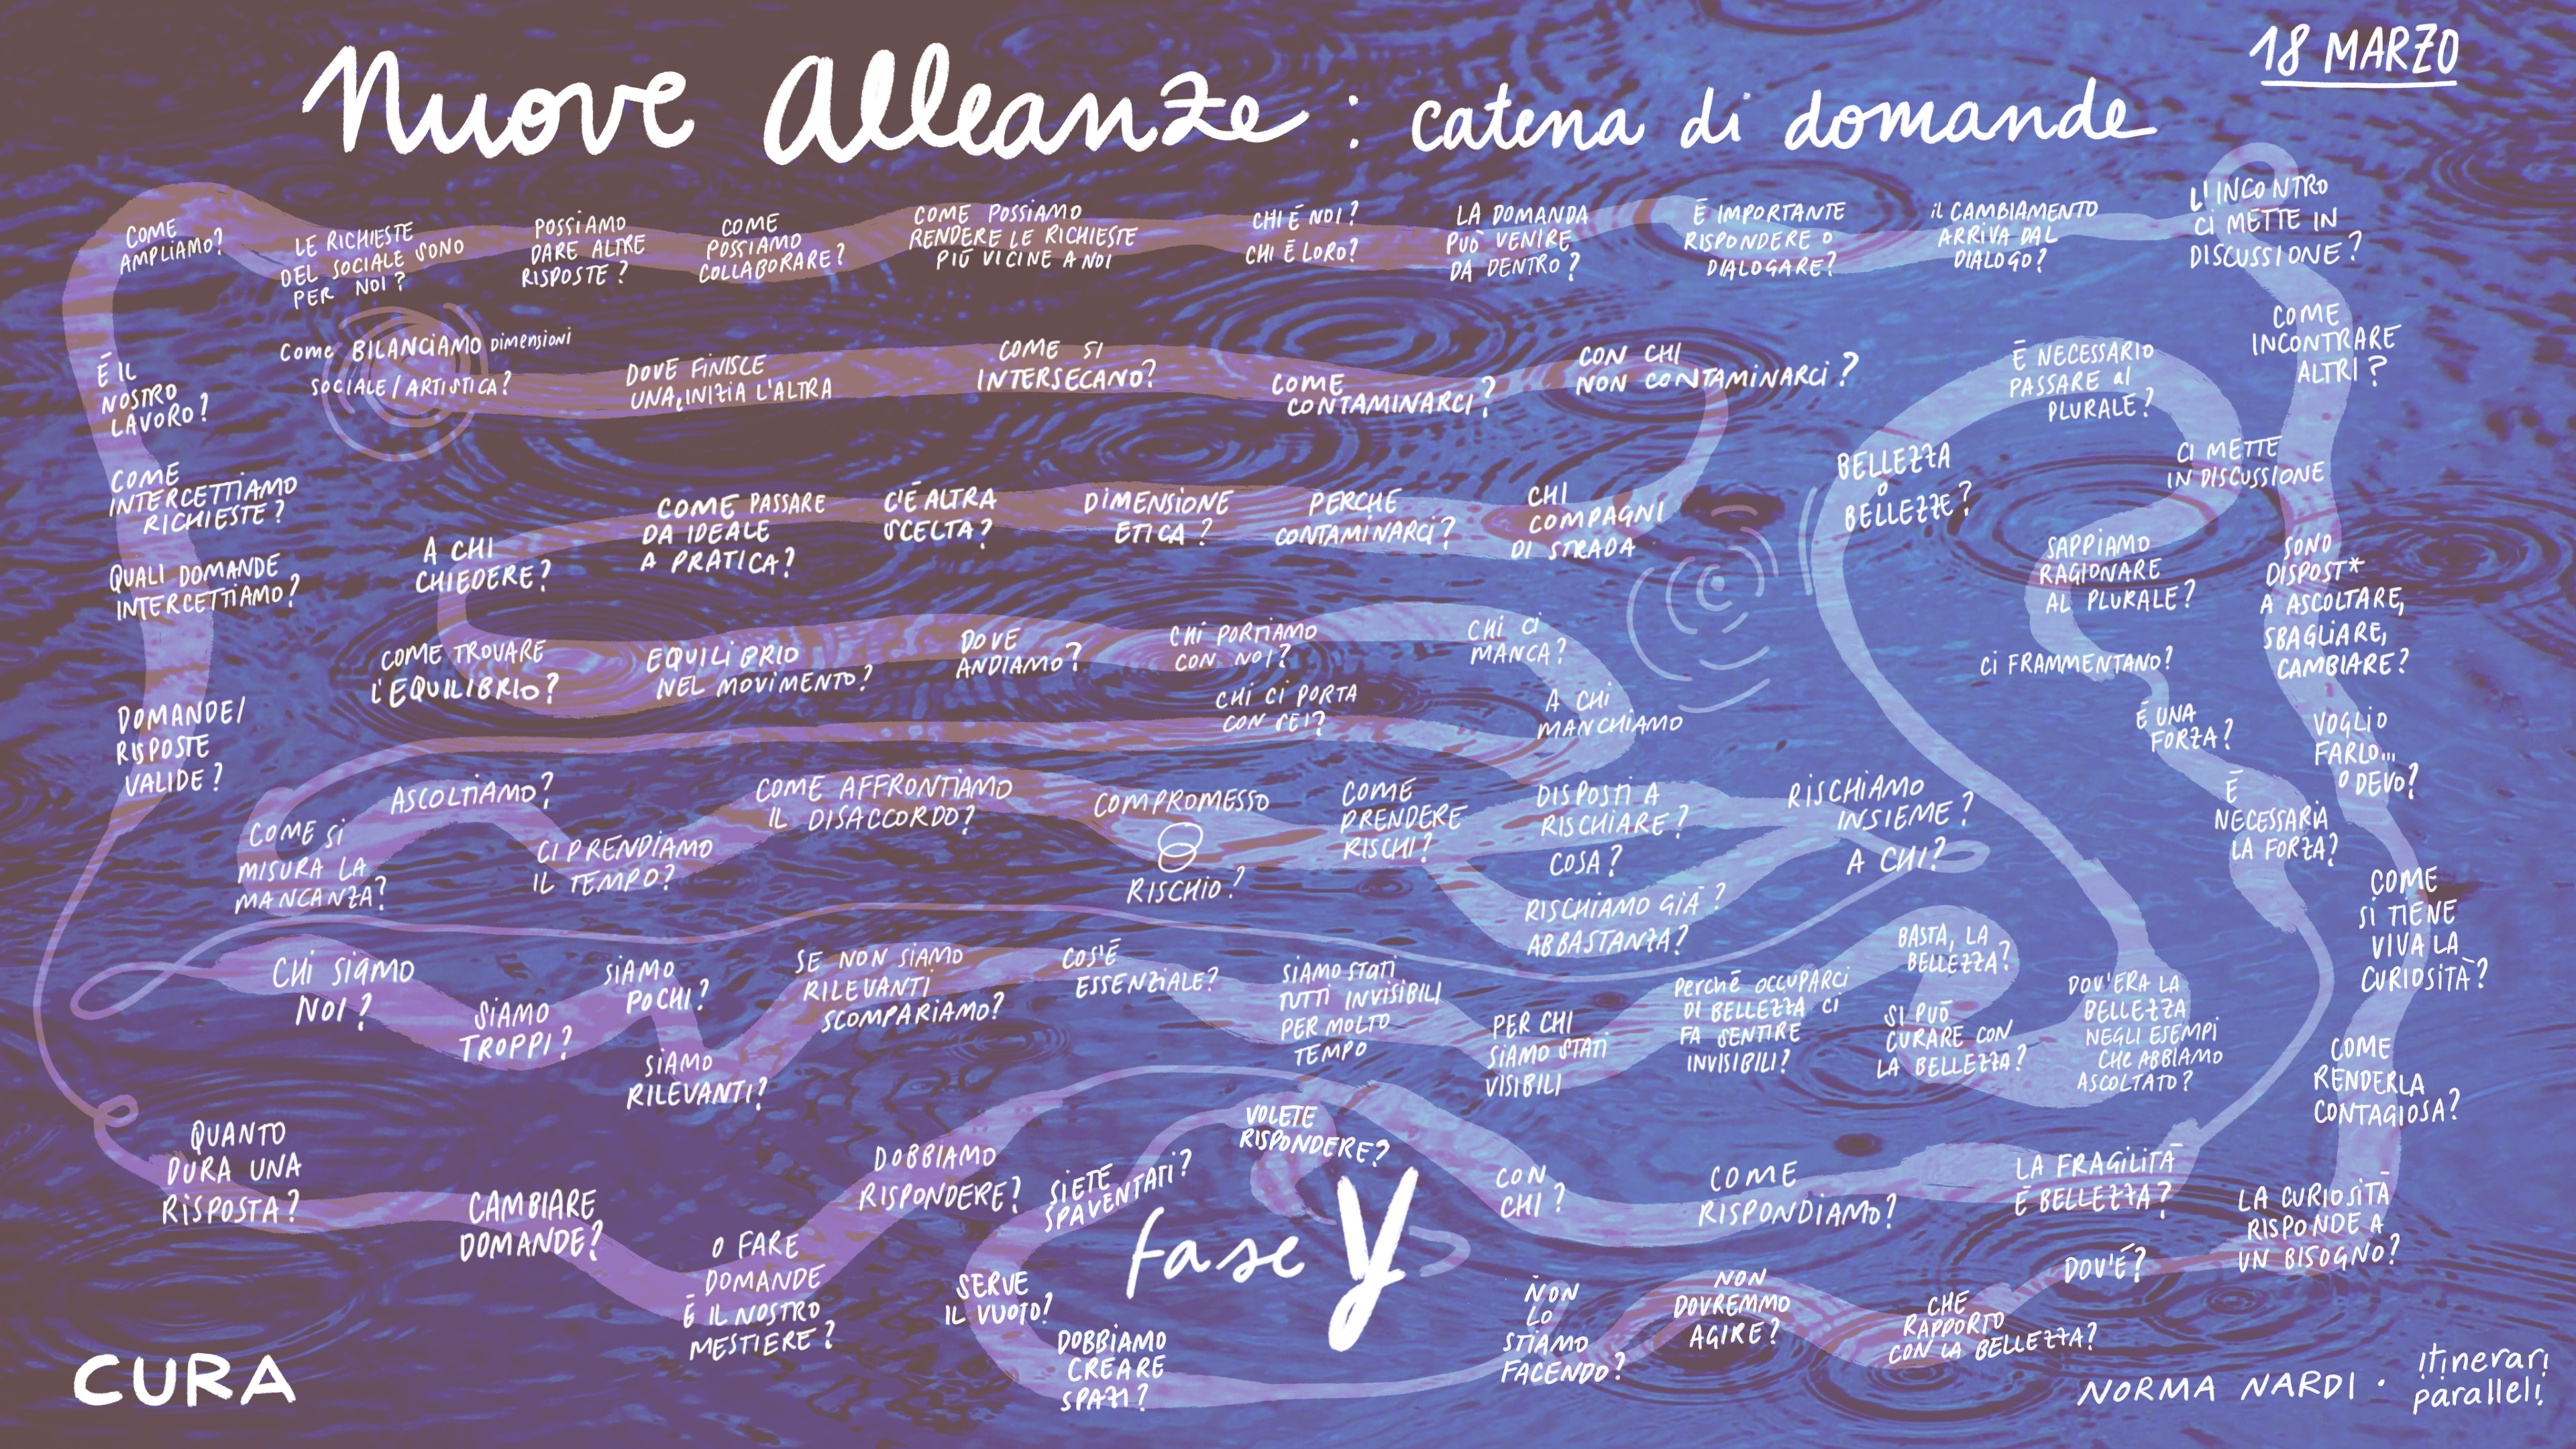 18 MARZO
Nuove Alleanze : catena di domande
COME
AMPLIAMO?
LE RICHIESTE
DEL SOCIALE SONO
PER NOI?
POSSIAMO
DARE ALTRE
RISPOSTE?
COME
POSSIAMO
COLLABORARE?
COME POSSIAMO
RENDERE LE RICHIESTE
PIÙ VICINE A NOI
CHI È NOI?
CHI È LORO?
LA DOMANDA
PUÒ VENIRE
DA DENTRO?
È IMPORTANTE
RISPONDERE O
DIALOGARE?
IL CAMBIAMENTO
ARRIVA DAL
DIALOGO?
L'INCONTRO
CI METTE IN
DISCUSSIONE?
COME
INCONTRARE
ALTRI?
È IL
NOSTRO
LAVORO?
COME BILANCIAMO DIMENSIONI
SOCIALE/ARTISTICA?
DOVE FINISCE
UNA, INIZIA L'ALTRA
COME SI
INTERSECANO?
COME
CONTAMINARCI?
CON CHI
NON CONTAMINARCI?
È NECESSARIO
PASSARE al
PLURALE?
BELLEZZA
O
BELLEZZE?
CI METTE
IN DISCUSSIONE
COME
INTERCETTIAMO
RICHIESTE?
QUALI DOMANDE
INTERCETTIAMO?
A CHI
CHIEDERE?
COME PASSARE
DA IDEALE
A PRATICA?
C'È ALTRA
SCELTA?
DIMENSIONE
ETICA?
PERCHE
CONTAMINARCI?
CHI
COMPAGNI
DI STRADA
SAPPIAMO
RAGIONARE
AL PLURALE?
SONO
DISPOST*
A ASCOLTARE,
SBAGLIARE,
CAMBIARE?
COME TROVARE
L'EQUILIBRIO?
EQUILIBRIO
NEL MOVIMENTO?
DOVE
ANDIAMO?
CHI PORTIAMO
CON NOI?
CHI CI PORTA
CON SÉ?
CHI CI
MANCA?
A CHI
MANCHIAMO
CI FRAMMENTANO?
È UNA
FORZA?
VOGLIO
FARLO...
O DEVO?
DOMANDE/
RISPOSTE
VALIDE?
ASCOLTIAMO?
COME SI
MISURA LA
MANCANZA?
CI PRENDIAMO
IL TEMPO?
COME AFFRONTIAMO
IL DISACCORDO?
COMPROMESSO
RISCHIO?
COME
PRENDERE
RISCHI?
DISPOSTI A
RISCHIARE?
COSA?
RISCHIAMO GIÀ
ABBASTANZA?
RISCHIAMO
INSIEME?
A CHI?
È
NECESSARIA
LA FORZA?
COME
SI TIENE
VIVA LA
CURIOSITÀ?
CHI SIAMO
NOI?
SIAMO
TROPPI?
SIAMO
POCHI?
SIAMO
RILEVANTI?
SE NON SIAMO
RILEVANTI
SCOMPARIAMO?
COS'È
ESSENZIALE?
SIAMO STATI
TUTTI INVISIBILI
PER MOLTO
TEMPO
PER CHI
SIAMO STATI
VISIBILI
PERCHÉ OCCUPARCI
DI BELLEZZA CI
FA SENTIRE
INVISIBILI?
BASTA, LA
BELLEZZA?
SI PUÒ
CURARE CON
LA BELLEZZA?
DOV'ERA LA
BELLEZZA
NEGLI ESEMPI
CHE ABBIAMO
ASCOLTATO?
COME
RENDERLA
CONTAGIOSA?
QUANTO
DURA UNA
RISPOSTA?
CAMBIARE
DOMANDE?
O FARE
DOMANDE
È IL NOSTRO
MESTIERE?
DOBBIAMO
RISPONDERE?
SIETE
SPAVENTATI?
VOLETE
RISPONDERE?
fase Y
SERVE
IL VUOTO?
DOBBIAMO
CREARE
SPAZI?
CON
CHI?
COME
RISPONDIAMO?
LA FRAGILITÀ
È BELLEZZA?
LA CURIOSITÀ
RISPONDE A
UN BISOGNO?
DOV'È?
CHE
RAPPORTO
CON LA BELLEZZA?
NON
DOVREMMO
AGIRE?
NON
LO
STIAMO
FACENDO?
CURA
NORMA NARDI · itinerari
paralleli